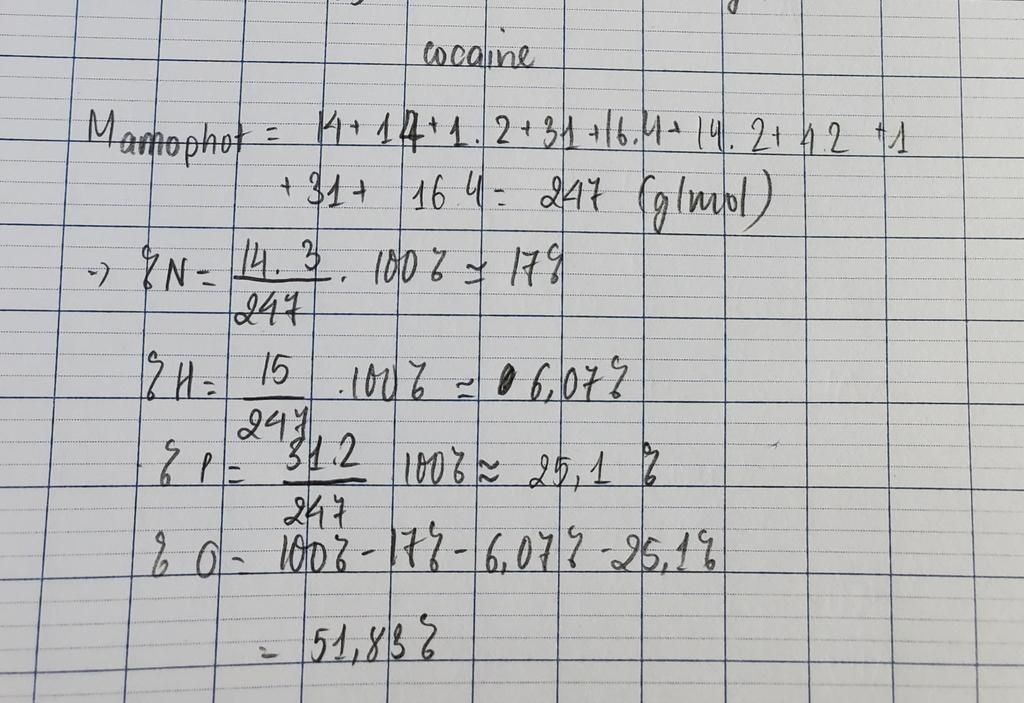 cocaine
Mamophot = 14+14+1.2+31+16.4+14.2+4.2+1
+31+ 16 4 = 247 (g/mol)
-> %N = 14.3/247 . 100% ≈ 17%
%H = 15/247 .100% ≈ 6,07%
%P = 31.2/247 100% ≈ 25,1 %
%O = 100% - 17% - 6,07% - 25,1%
= 51,83%